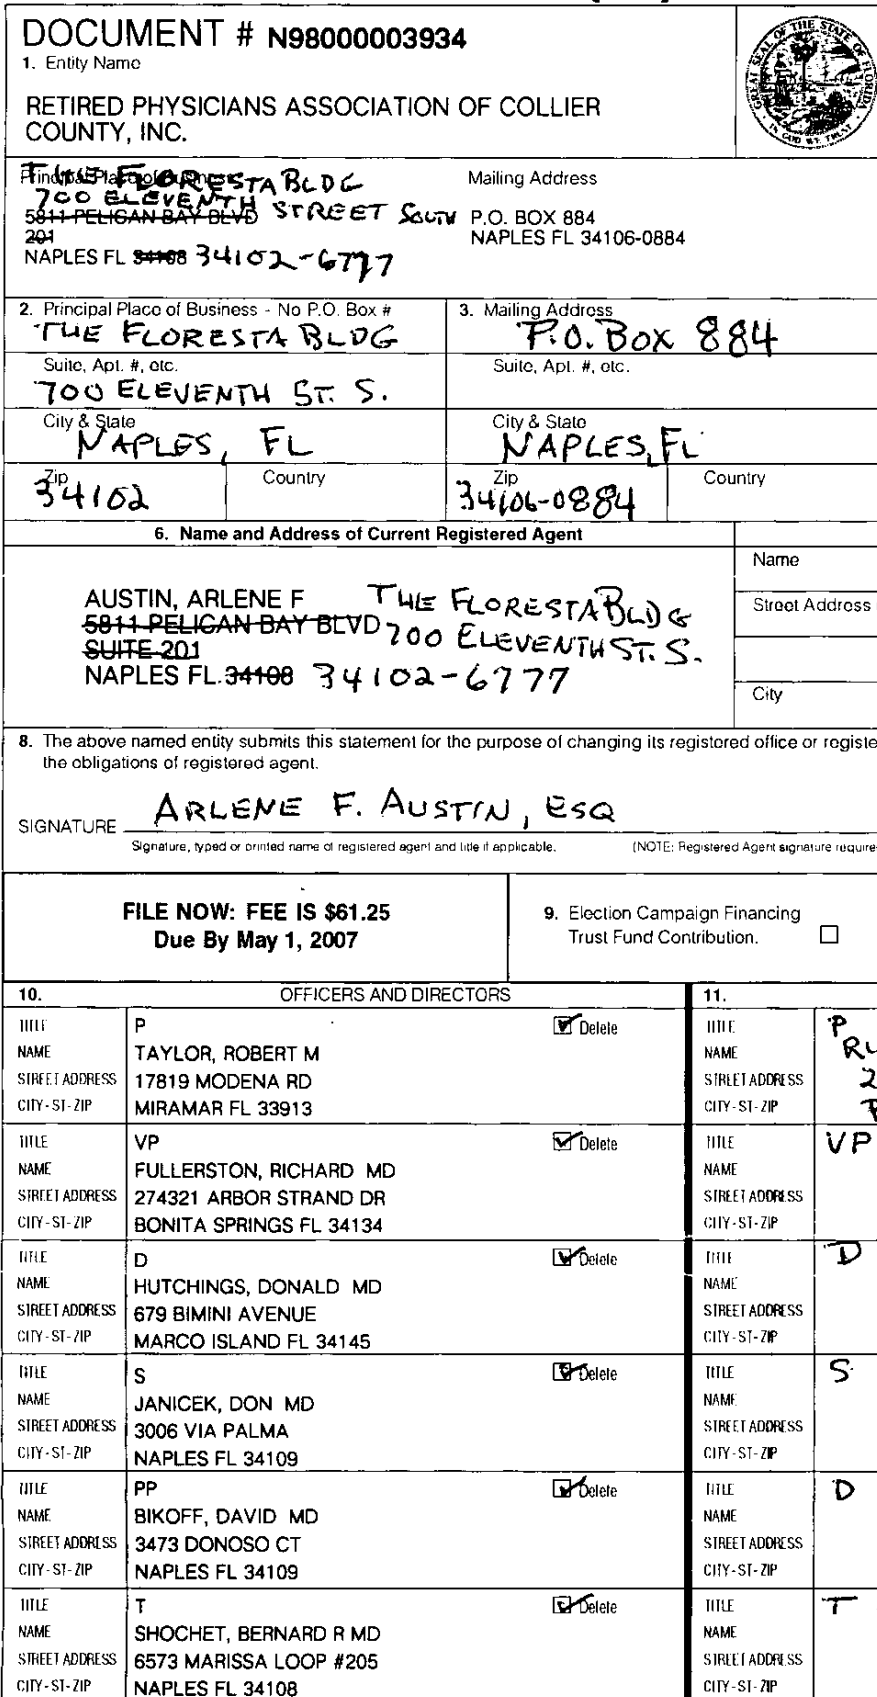 DOCUMENT # N98000003934
1. Entity Name
RETIRED PHYSICIANS ASSOCIATION OF COLLIER
COUNTY, INC.
GREAT SEAL OF THE STATE OF FLORIDA
IN GOD WE TRUST
Principal Place of Business
THE FLORESTA BLDG
700 ELEVENTH STREET SOUTH
5811 PELICAN BAY BLVD
201
NAPLES FL 34108 34102-6777
Mailing Address
P.O. BOX 884
NAPLES FL 34106-0884
2. Principal Place of Business - No P.O. Box #
THE FLORESTA BLDG
3. Mailing Address
P.O. BOX 884
Suite, Apt. #, etc.
700 ELEVENTH ST. S.
Suite, Apt. #, etc.
City & State
NAPLES, FL
City & State
NAPLES, FL
Zip
34102
Country
Zip
34106-0884
Country
6. Name and Address of Current Registered Agent
AUSTIN, ARLENE F THE FLORESTA BLDG
5811 PELICAN BAY BLVD 700 ELEVENTH ST. S.
SUITE 201
NAPLES FL 34108 34102-6777
Name
Street Address
City
8. The above named entity submits this statement for the purpose of changing its registered office or registe
the obligations of registered agent.
SIGNATURE ARLENE F. AUSTIN, ESQ
Signature, typed or printed name of registered agent and title if applicable. (NOTE: Registered Agent signature require
FILE NOW: FEE IS $61.25
Due By May 1, 2007
9. Election Campaign Financing
Trust Fund Contribution.
10. OFFICERS AND DIRECTORS 11.
TITLE P Delete TITLE P
NAME TAYLOR, ROBERT M NAME RU
STREET ADDRESS 17819 MODENA RD STREET ADDRESS 2
CITY-ST-ZIP MIRAMAR FL 33913 CITY-ST-ZIP
TITLE VP Delete TITLE VP
NAME FULLERSTON, RICHARD MD NAME
STREET ADDRESS 274321 ARBOR STRAND DR STREET ADDRESS
CITY-ST-ZIP BONITA SPRINGS FL 34134 CITY-ST-ZIP
TITLE D Delete TITLE D
NAME HUTCHINGS, DONALD MD NAME
STREET ADDRESS 679 BIMINI AVENUE STREET ADDRESS
CITY-ST-ZIP MARCO ISLAND FL 34145 CITY-ST-ZIP
TITLE S Delete TITLE S
NAME JANICEK, DON MD NAME
STREET ADDRESS 3006 VIA PALMA STREET ADDRESS
CITY-ST-ZIP NAPLES FL 34109 CITY-ST-ZIP
TITLE PP Delete TITLE D
NAME BIKOFF, DAVID MD NAME
STREET ADDRESS 3473 DONOSO CT STREET ADDRESS
CITY-ST-ZIP NAPLES FL 34109 CITY-ST-ZIP
TITLE T Delete TITLE T
NAME SHOCHET, BERNARD R MD NAME
STREET ADDRESS 6573 MARISSA LOOP #205 STREET ADDRESS
CITY-ST-ZIP NAPLES FL 34108 CITY-ST-ZIP